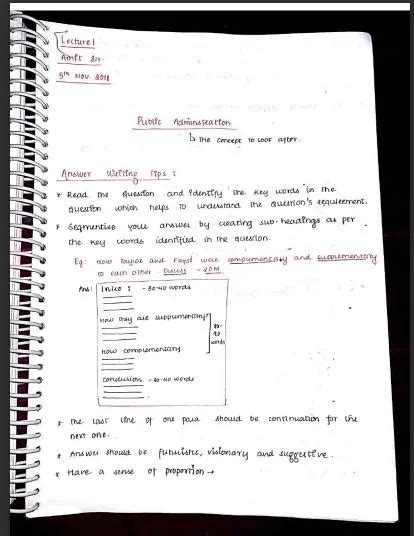 Lecture 1
Amit Sir.
5th Nov. 2018
Public Administration
↳ The concept to look after.
Answer Writing Tips :
* Read the question and identify the key words in the
question which helps to understand the question's requirement.
* Segmentise your answer by creating sub-headings as per
the key words identified in the question.
Eg: How Taylor and Fayol were complimentary and supplementary
to each other. Discuss - 20M
Ans: Intro : - 30-40 words
How they are supplimentary?
How complimentary
80-90 words
Conclusion - 30-40 words
* The last line of one para should be continuation for the
next one.
* Answer should be futuristic, visionary and suggestive.
* Have a sense of proportion →